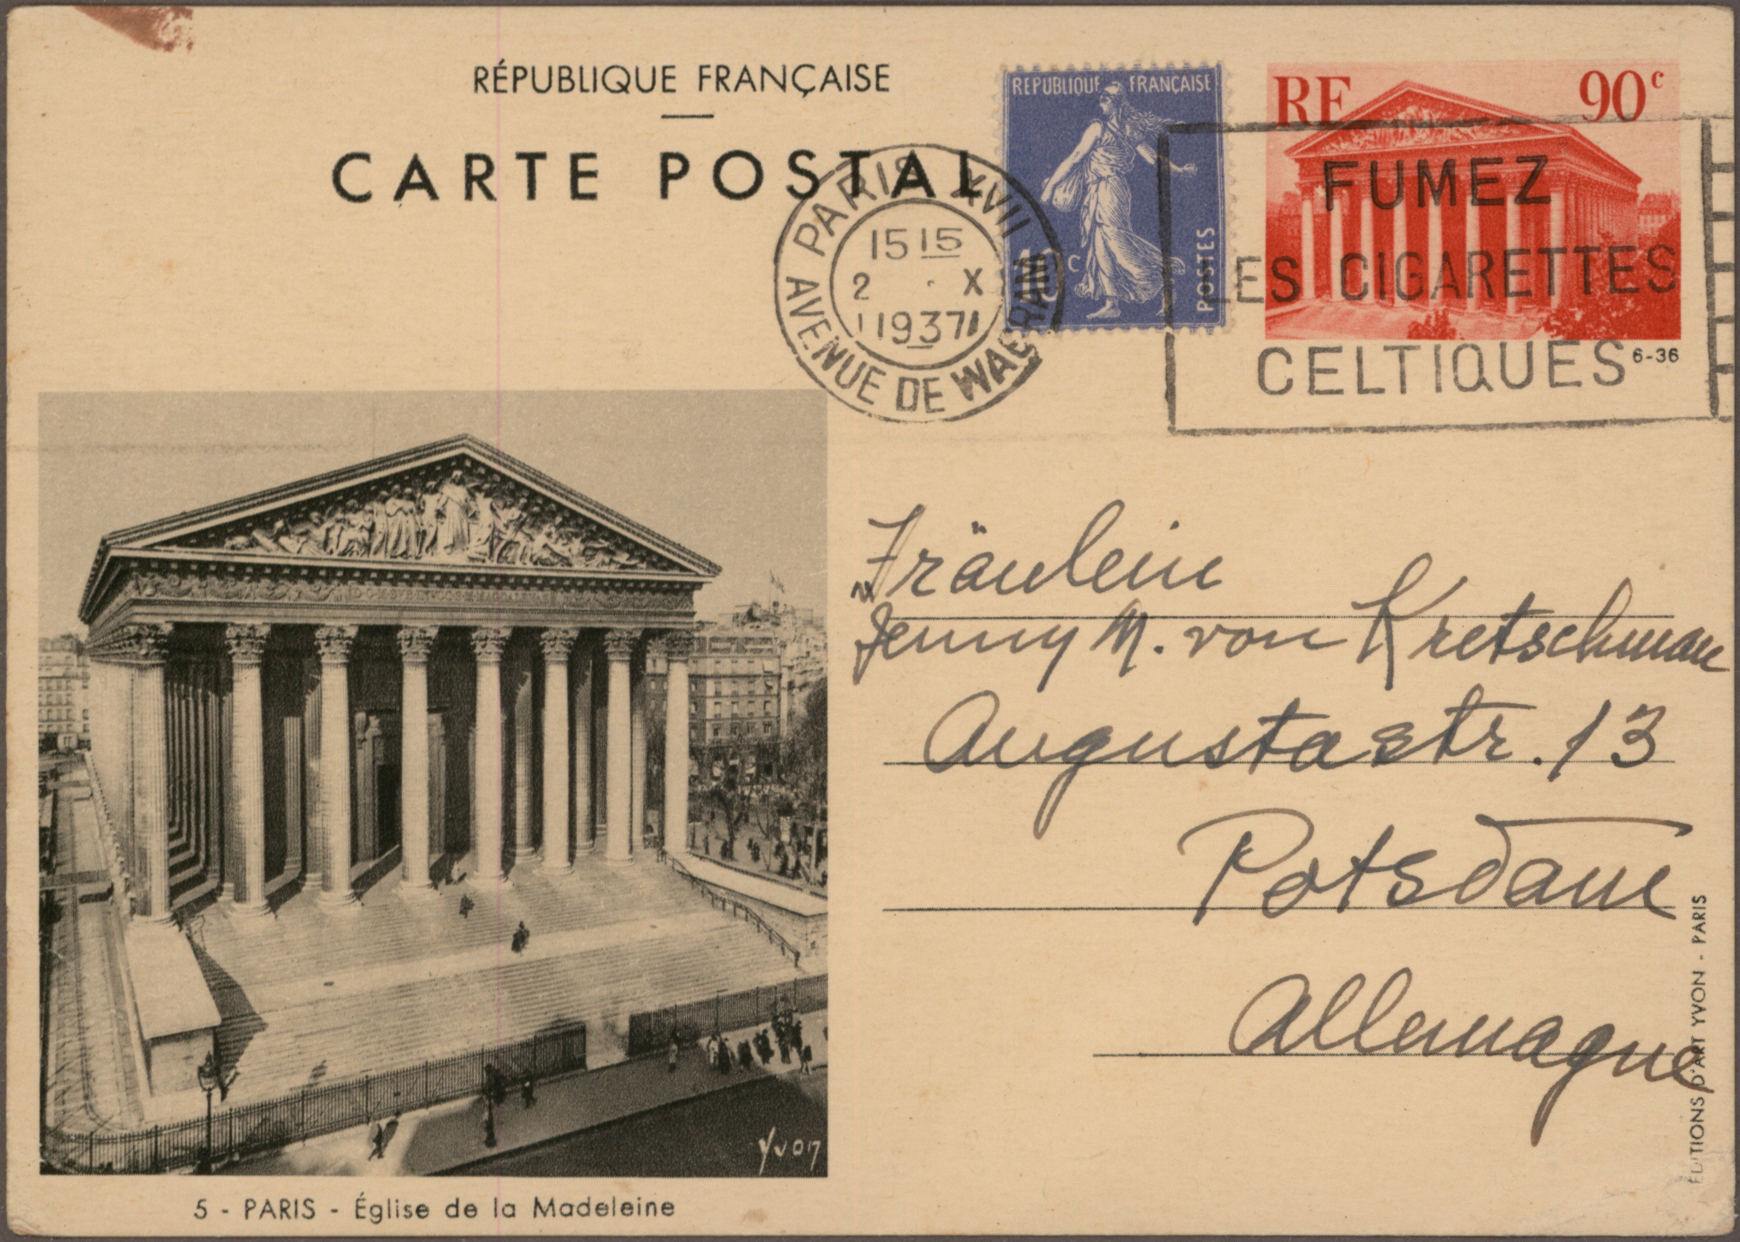 RÉPUBLIQUE FRANÇAISE
CARTE POSTAL
REPUBLIQUE FRANÇAISE
c
POSTES
RF 90c
6-36
PARIS XVII
15 15
2 X
1937
AVENUE DE WAGRAM
FUMEZ
LES CIGARETTES
CELTIQUES
Fräulein
Jenny M. von Kretschman
Augustastr. 13
Potsdam
Allemagne
Yvon
5 - PARIS - Église de la Madeleine
ÉDITIONS D'ART YVON - PARIS